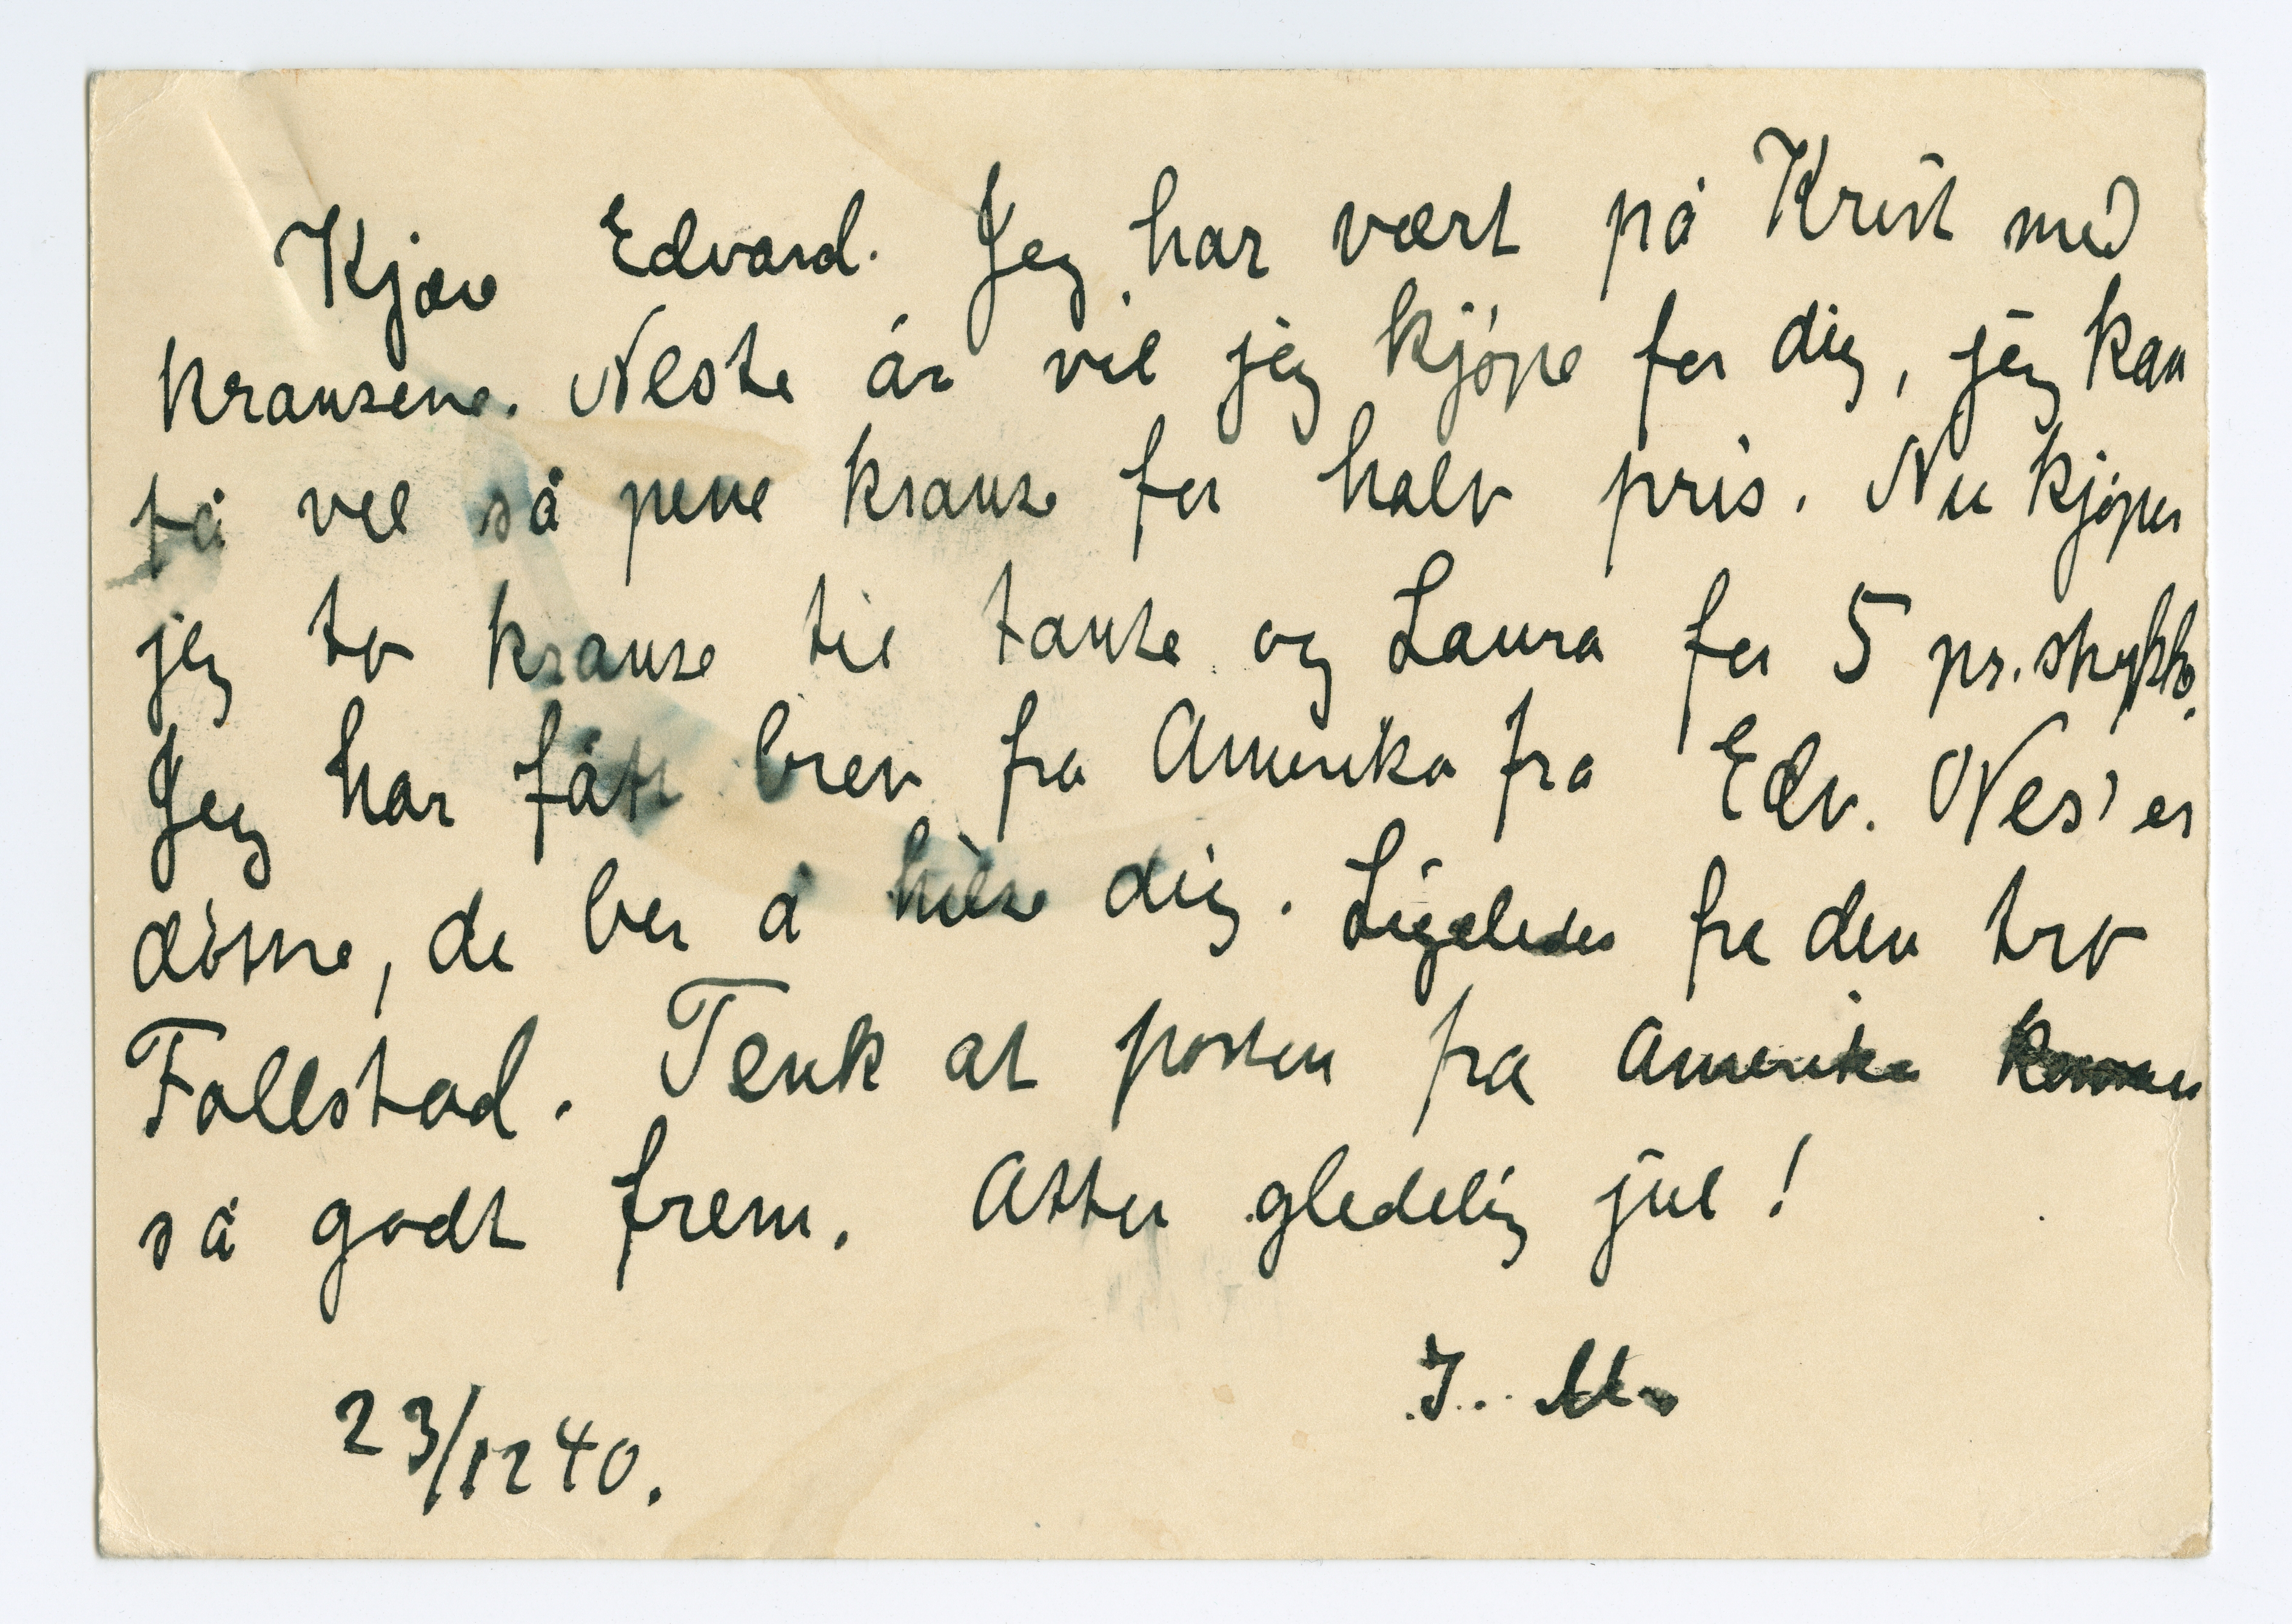 Kjære Edvard. Jeg har vært på Krist med
kransene. Neste år vil jeg kjøpe for dig, jeg kan
få vel så pene kranse for halv pris. Nu kjøper
jeg to kranse til tante og Laura for 5 pr. stykke.
Jeg har fått brev fra Amerika fra Edv. Nes' er
døttre, de ber å hilse dig. Ligeledes fra den tro
Follestad. Tenk at posten fra Amerika kommer
så godt frem. Atter gledelig jul!
I. M.
23/12 40.